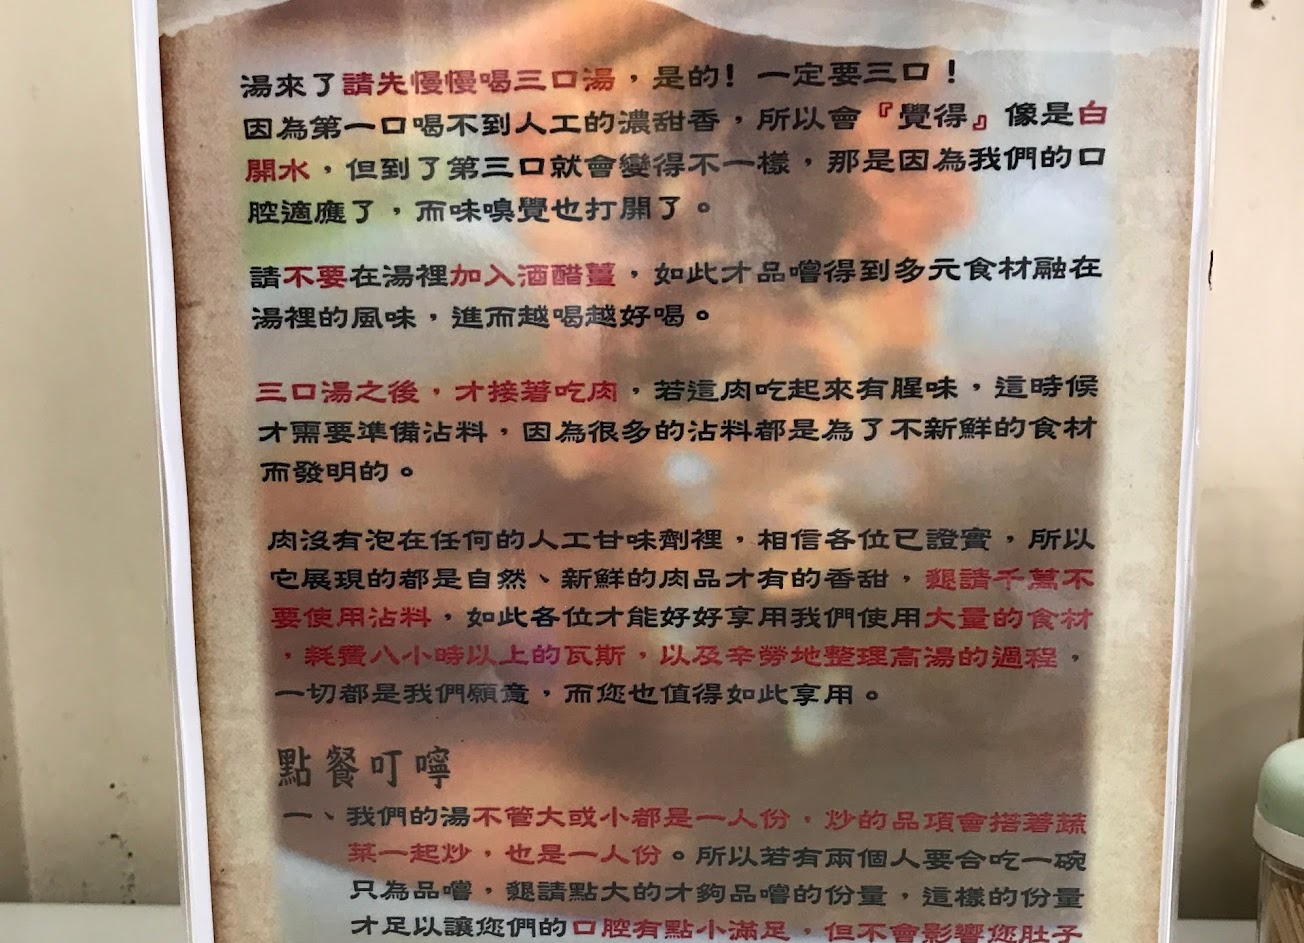 湯來了請先慢慢喝三口湯，是的！一定要三口！
因為第一口喝不到人工的濃甜香，所以會『覺得』像是白
開水，但到了第三口就會變得不一樣，那是因為我們的口
腔適應了，而味嗅覺也打開了。
請不要在湯裡加入酒醋薑，如此才品嚐得到多元食材融在
湯裡的風味，進而越喝越好喝。
三口湯之後，才接著吃肉，若這肉吃起來有腥味，這時候
才需要準備沾料，因為很多的沾料都是為了不新鮮的食材
而發明的。
肉沒有泡在任何的人工甘味劑裡，相信各位已證實，所以
它展現的都是自然、新鮮的肉品才有的香甜，懇請千萬不
要使用沾料，如此各位才能好好享用我們使用大量的食材
，耗費八小時以上的瓦斯，以及辛勞地整理高湯的過程，
一切都是我們願意，而您也值得如此享用。
點餐叮嚀
一、我們的湯不管大或小都是一人份，炒的品項會搭著蔬
菜一起炒，也是一人份。所以若有兩個人要合吃一碗
只為品嚐，懇請點大的才夠品嚐的份量，這樣的份量
才足以讓您們的口腔有點小滿足，但不會影響您肚子